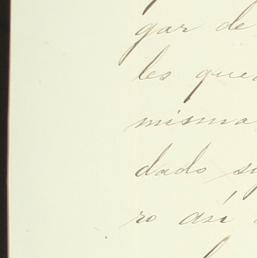 gar de
les que
misma
dado su
ro así